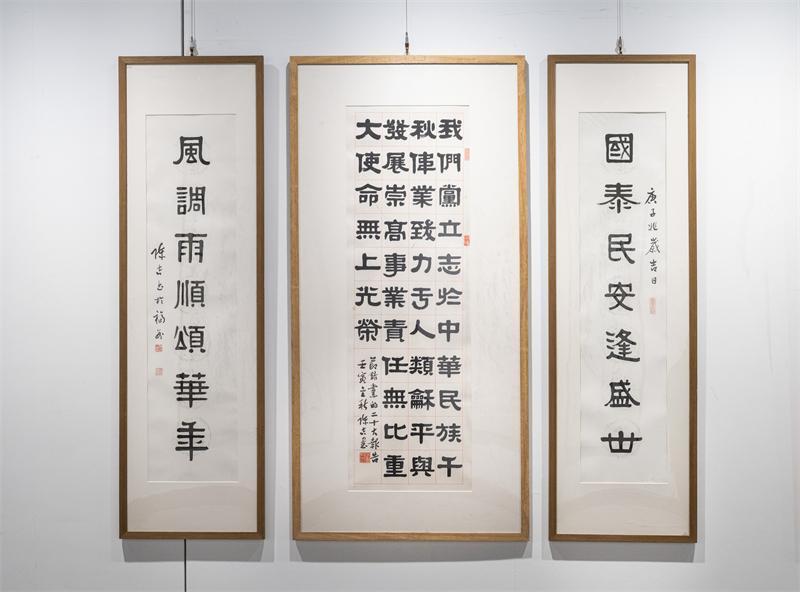 國泰民安逢盛世
庚子兆歲吉日
我們黨立志於中華民族千
秋偉業致力于人類龢平與
發展崇高事業責任無比重
大使命無上光榮
節錄黨的二十大報告
壬寅金秋陳吉書
風調雨順頌華年
陳吉書於福州